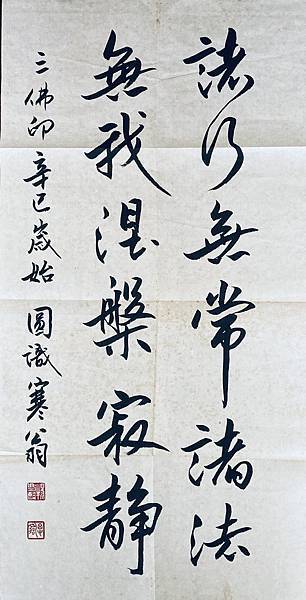 諸行無常諸法
無我涅槃寂静
三佛印 辛巳歲始 圓識寒翁